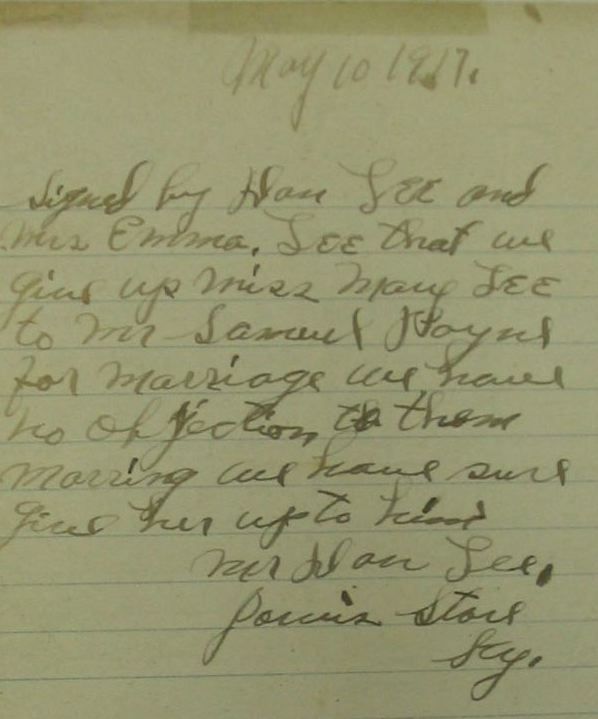 May 10 1917.
Signed by Dan Lee and
Mrs Emma. Lee that we
give up miss Mary Lee
to Mr Samuel Payne
for marriage we have
no objection to them
marring we have sure
give her up to him
Mr Dan Lee.
Store
Ky.